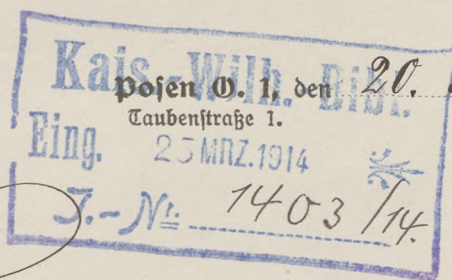 Kais.-Wilh. Bibl.
Posen O. 1, den 20.
Taubenstraße 1.
Eing. 25 MRZ. 1914
J.-Nr. 1403/14.